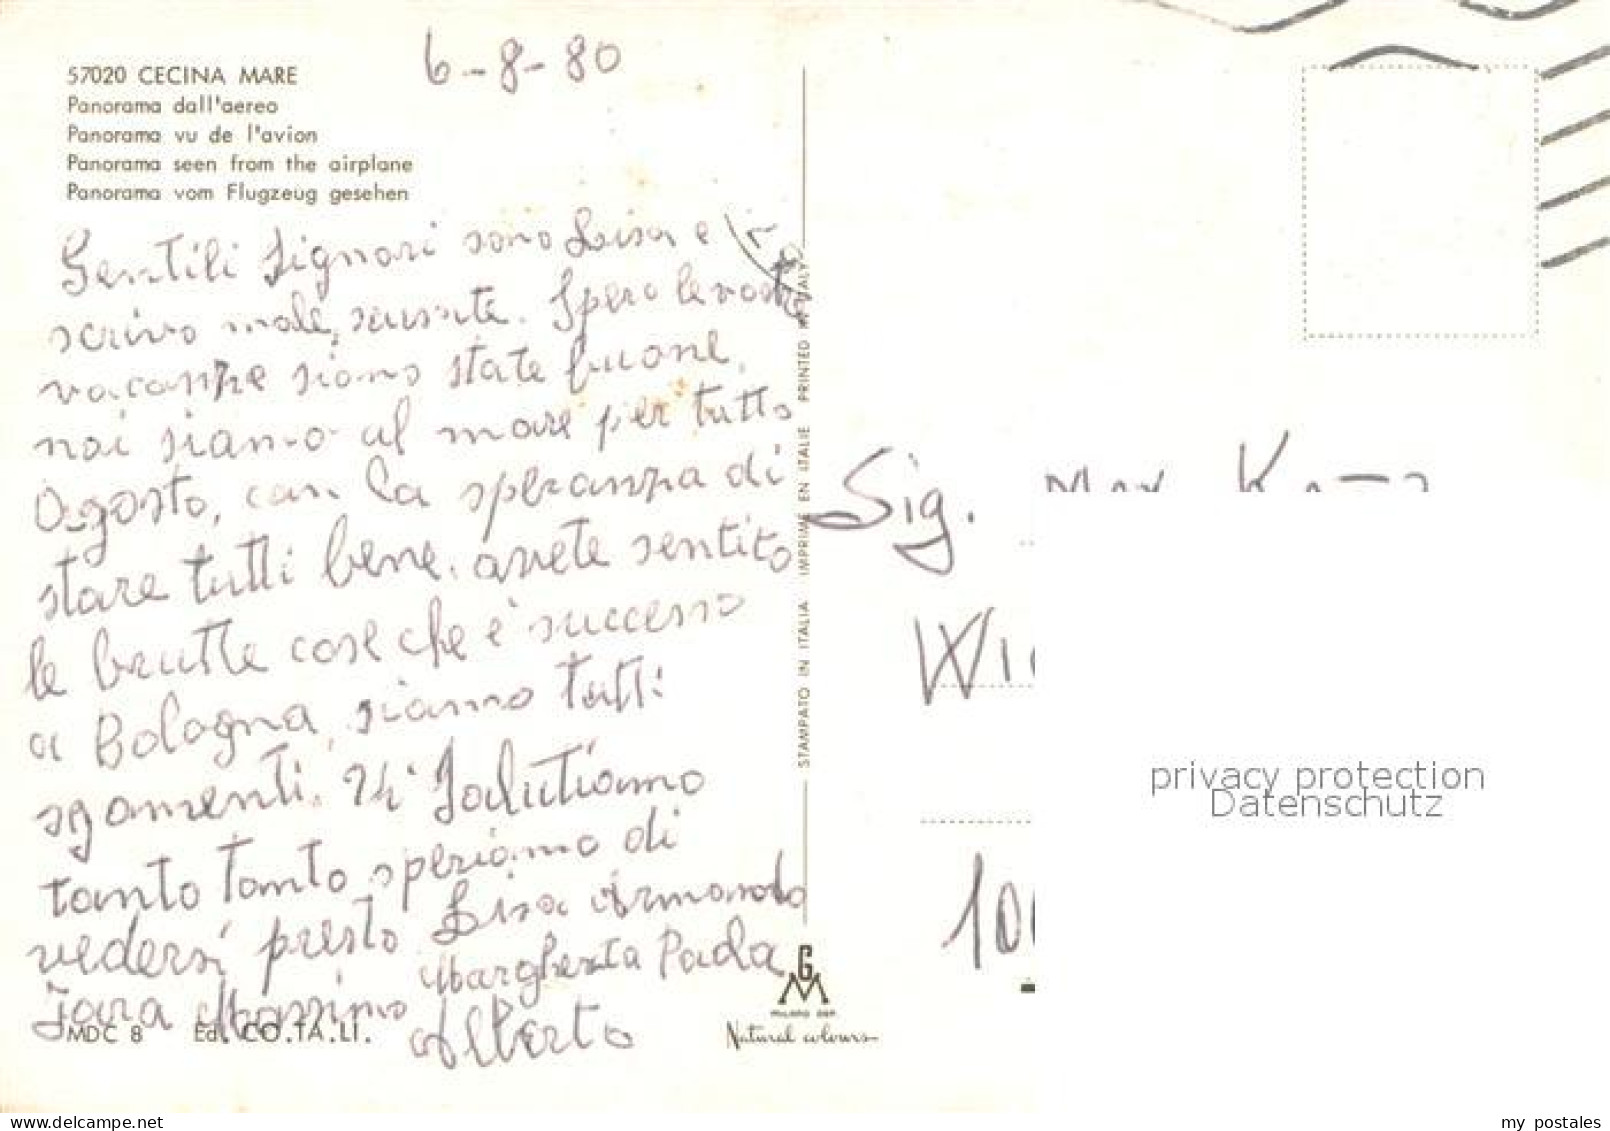 57020 CECINA MARE
Panorama dall'aereo
Panorama vu de l'avion
Panorama seen from the airplane
Panorama vom Flugzeug gesehen
6-8-80
Gentili Signori sono Lisa e
scrivo male, scusate. Spero le vostre
vacanze siano state buone,
noi siamo al mare per tutto
Agosto, con la speranza di
stare tutti bene. avete sentito
le brutte cose che è successo
a Bologna, siamo tutti
sgomenti. Vi Salutiamo
tanto tanto speriamo di
vedersi presto Lisa Armando
Margherita Paola
Sara Massimo
Alberto
MDC 8 Ed. CO.TA.LI.
STAMPATO IN ITALIA IMPRIMÉ EN ITALIE PRINTED IN ITALY
GM
MILANO
Natural colours
Sig.
privacy protection
Datenschutz
my postales